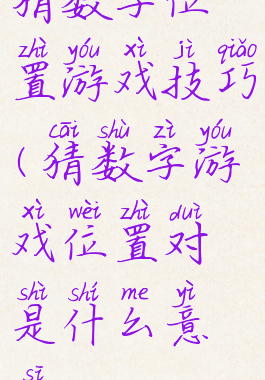 猜数字位
zhì yóu xì jì qiǎo
置游戏技巧
cāi shù zì yóu
(猜数字游
xì wèi zhì duì
戏位置对
shì shí me yì
是什么意
sī